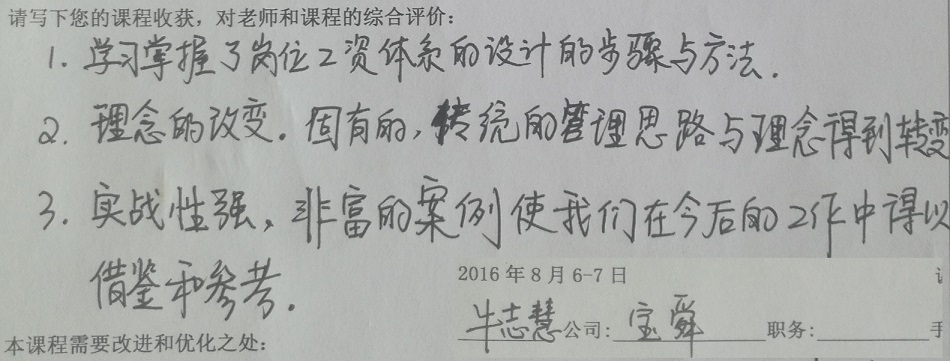 请写下您的课程收获，对老师和课程的综合评价：
1. 学习掌握了岗位工资体系的设计的步骤与方法.
2. 理念的改变。固有的,传统的管理思路与理念得到转变
3. 实战性强，非富的案例使我们在今后的工作中得以
借鉴和参考.
2016年8月6-7日
牛志慧公司：宝舜 职务： 手
本课程需要改进和优化之处：